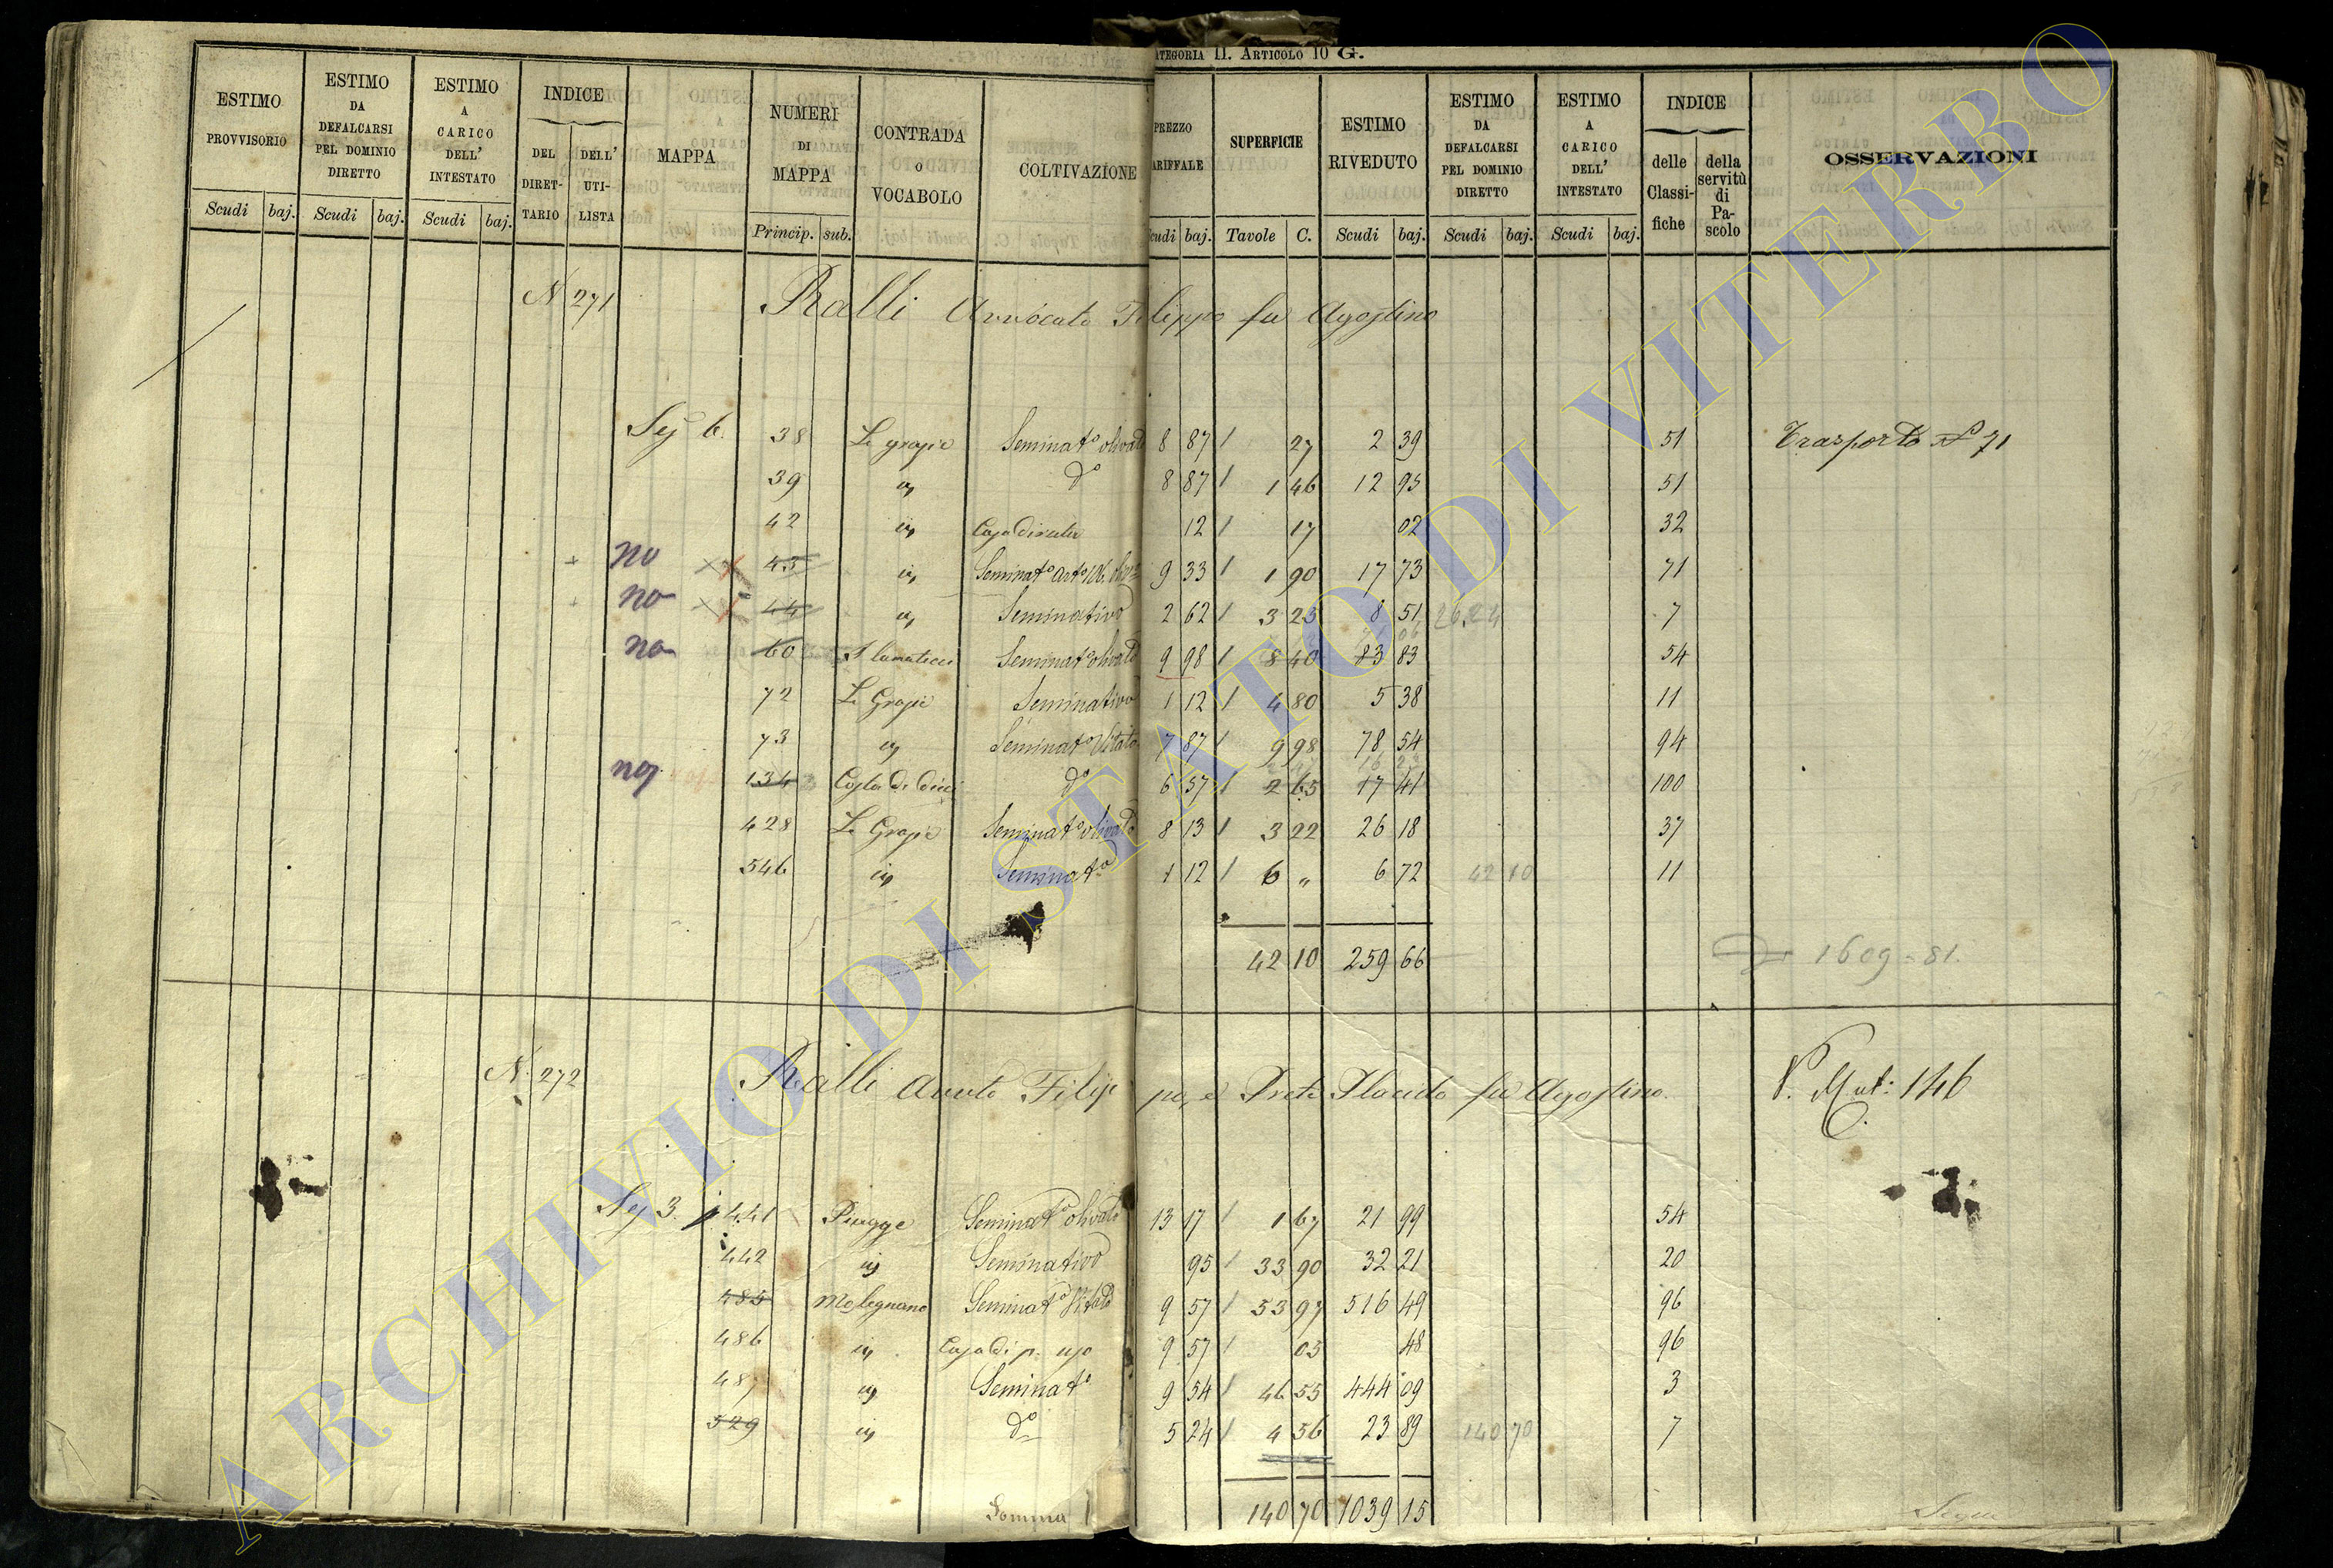 CATEGORIA II. ARTICOLO 10 G.
ESTIMO PROVVISORIO Scudi baj.
ESTIMO DA DEFALCARSI PEL DOMINIO DIRETTO Scudi baj.
ESTIMO A CARICO DELL' INTESTATO Scudi baj.
INDICE DEL DIRET-TARIO DELL' UTI-LISTA
MAPPA
NUMERI DI MAPPA Princip. sub.
CONTRADA O VOCABOLO
COLTIVAZIONE
PREZZO TARIFFALE Scudi baj.
SUPERFICIE Tavole C.
ESTIMO RIVEDUTO Scudi baj.
ESTIMO DA DEFALCARSI PEL DOMINIO DIRETTO Scudi baj.
ESTIMO A CARICO DELL' INTESTATO Scudi baj.
INDICE delle Classi-fiche della servitù di Pa-scolo
OSSERVAZIONI
N 271 Ralli Avvocato Filippo fu Agostino
Sez 6. 38 Le grazie Seminato olivato 8 87 / 27 2 39 51 Trasporto N 71
39 in do 8 87 / 1 46 12 95 51
42 in Casa diruta 12 / 17 02 32
no 43 in 9 33 / 1 90 17 73 71
no 44 in Seminativo 2 62 / 3 25 8 51 26 24 7
no 60 Seminato olivato 9 98 / 8 40 83 83 54
72 Le Grazie Seminativo 1 12 / 4 80 5 38 11
73 in Seminato Vitato 7 87 / 9 98 78 54 94
no 134 Costa di do 6 57 / 2 65 17 41 100
428 Le Grazie Seminato olivato 8 13 / 3 22 26 18 37
546 in Seminato 1 12 / 6 " 6 72 42 10 11
42 10 259 66 1609=81.
N. 272 Ralli Avvoto Filippo, e Prete Placido fu Agostino. V. Mut: 146
Sez 3. 441 Piagge Seminato olivato 13 17 / 1 67 21 99 54
442 in Seminativo 95 / 33 90 32 21 20
485 Molegnano Seminato Vitato 9 57 / 53 97 516 49 96
486 in Casa di p. uso 9 57 / 05 48 96
487 in Seminato 9 54 / 46 55 444 09 3
529 in do 5 24 / 4 56 23 89 140 70 7
Somma 140 70 1039 15 Segue
ARCHIVIO DI STATO DI VITERBO